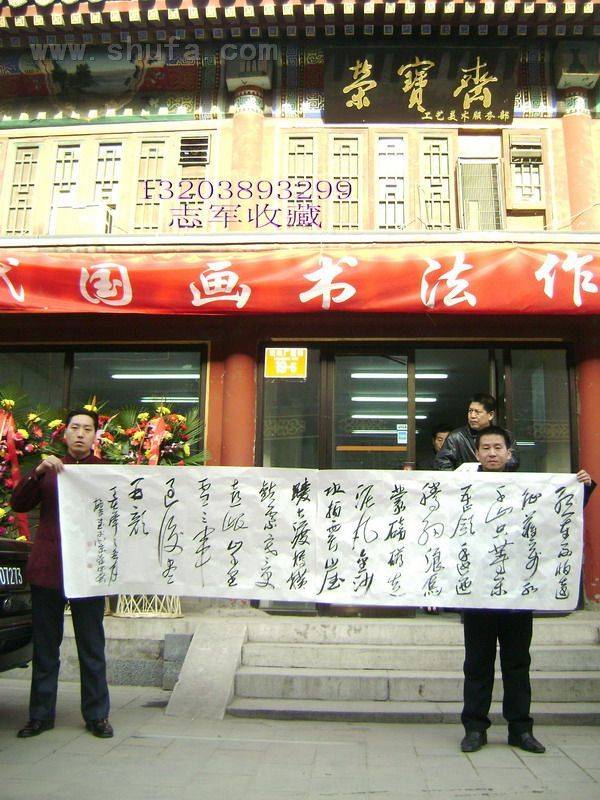 www.shufa.com
荣寳齋
工艺美术服务部
13203893299
志军收藏
代国画书法作
红军不怕远
征难万水
千山只等闲
五岭逶迤
腾细浪乌
蒙磅礴走
泥丸金沙
水拍雲崖
暖大渡桥横
铁索寒更
喜岷山千里
雪三军
过後尽
开颜
07273